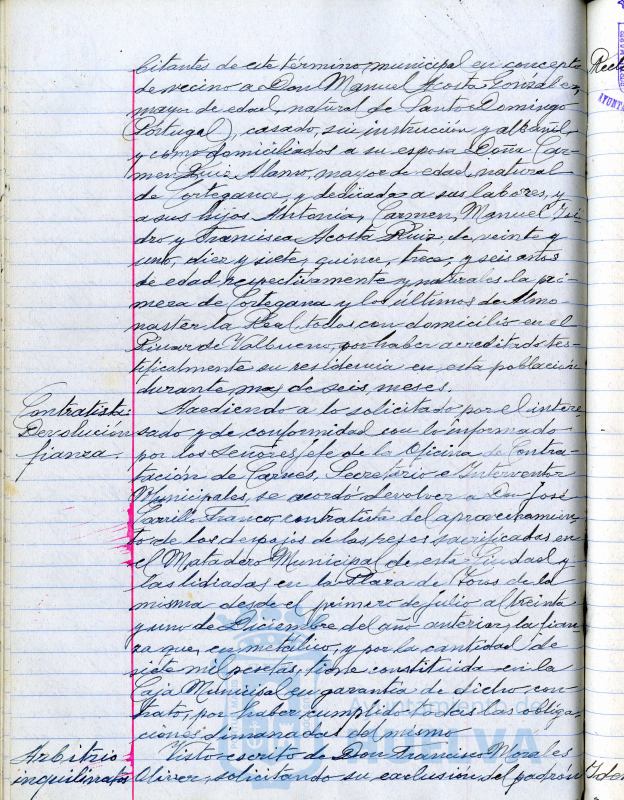 bitantes de este término municipal en concepto
de vecino a Don Manuel Acosta González,
mayor de edad, natural de Santo Domingo
(Portugal), casado, sin instrucción y albañil,
y como domiciliados a su esposa Doña Car-
men Ruiz Alonso, mayor de edad, natural
de Cortegana y dedicada a sus labores, y
a sus hijos Antonia, Carmen, Manuel, Isi-
dro y Francisca Acosta Ruiz, de veinte y
uno, diez y siete, quince, trece, y seis años
de edad respectivamente y naturales la pri-
mera de Cortegana y los últimos de Almo-
naster la Real, todos con domicilio en el
Pinar de Valbueno, por haber acreditado tes-
tificalmente su residencia en esta población
durante mas de seis meses.
Contratista:
Devolución
fianza.
Accediendo a lo solicitado por el intere-
sado y de conformidad con lo informado
por los Señores Jefe de la Oficina de Contra-
tación de Carnes, Secretario e Interventor
Municipales, se acordó devolver a Don José
Carrillo Franco, contratista del aprovechamien-
to de los despojos de las reses sacrificadas en
el Matadero Municipal de esta Ciudad y
las lidiadas en la Plaza de Toros de la
misma desde el primero de Julio al treinta
y uno de Diciembre del año anterior, la fian-
za que, en metálico, y por la cantidad de
siete mil pesetas, tiene constituida en la
Caja Municipal en garantía de dicho con-
trato, por haber cumplido todas las obliga-
ciones dimanadas del mismo.
Arbitrio
inquilinatos
Visto escrito de Don Francisco Morales
Oliver, solicitando su exclusión del padrón
Ayuntamiento de
HUELVA